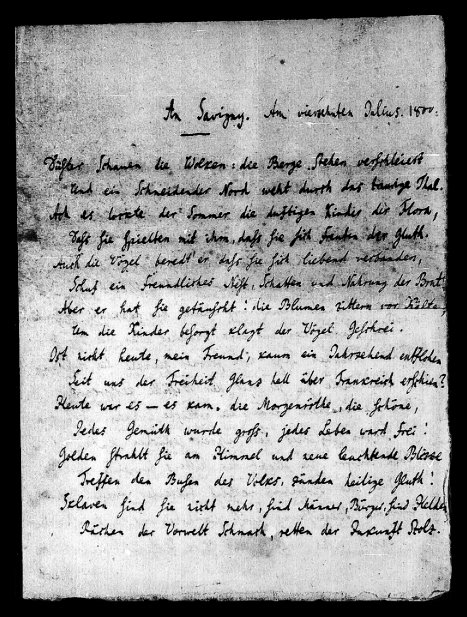 An Savigny. Am vierzehnten Julius. 1800.
Düster schauen die Wolken: die Berge stehen verschleiert
Und ein schneidender Nord weht durch das Thal.
Ach es lockte der Sommer die duftigen Kinder der Flora,
Daß sie spielten mit ihm, daß sie sich freuten der Gluth.
Auch die Vögel beredt er daß sie sich liebend verbanden,
Schuf ein freundliches Nest, Schatten und Nahrung der Brut
Aber er hat sie getäuscht: die Blumen zittern vor Kälte,
Um die Kinder besorgt klagt der Vögel Geschrei.
Ist nicht heute, mein Freund, kaum ein Jahrzehend entflohen
Seit uns der Freiheit Glanz hell über Frankreich erschien?
Heute war es — es kam die Morgenröthe, die schöne,
Jedes Gemüth wurde groß, jedes Leben ward frei!
Golden strahlt sie am Himmel und neue leuchtende Blitze
Treffen den Busen des Volks, zünden heilige Gluth!
Sklaven sind sie nicht mehr, sind Männer, Bürger, sind Helden
Rächen der Vorwelt Schmach, retten der Zukunft Stolz.